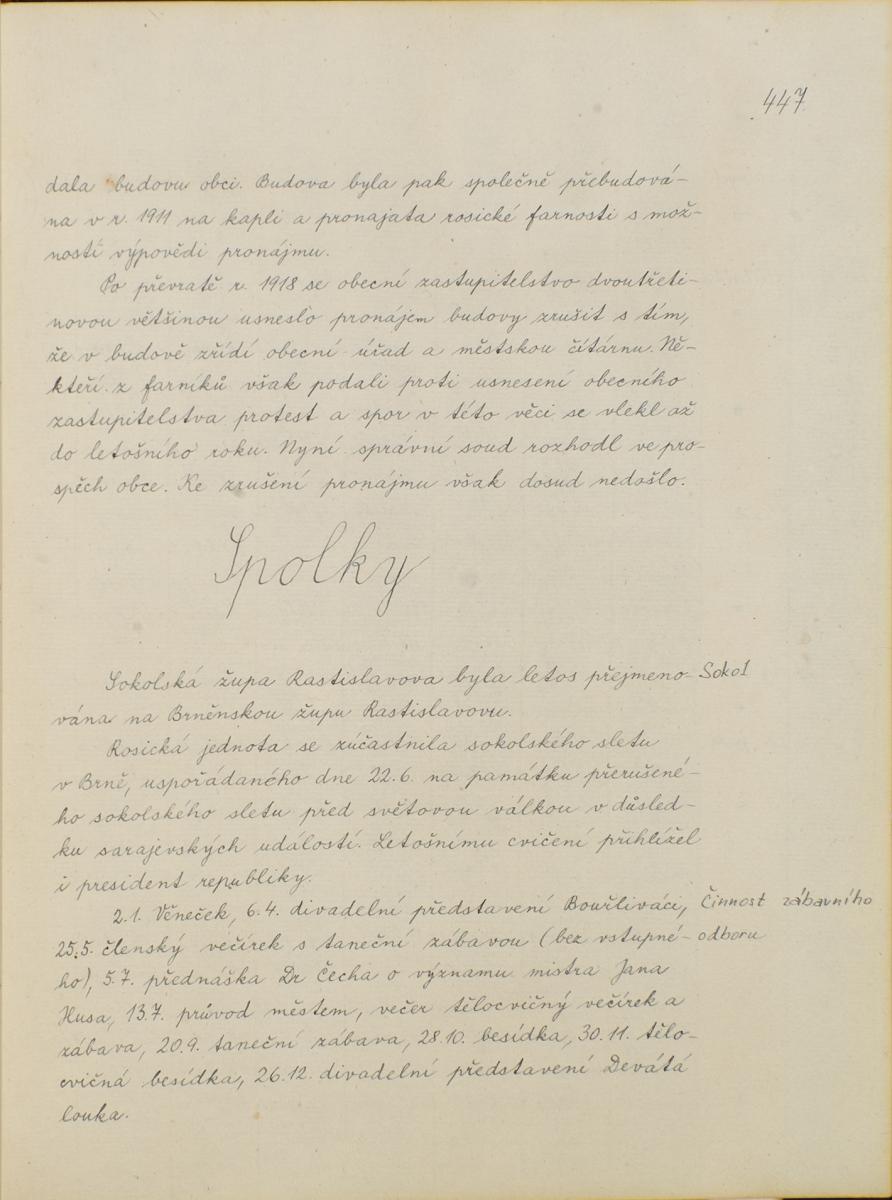 447
dala budovu obci. Budova byla pak společně přebudová-
na v r. 1911 na kapli a pronajata rosické farnosti s mož-
ností výpovědi pronájmu.
Po převratě r. 1918 se obecní zastupitelstvo dvoutřeti-
novou většinou usneslo pronájem budovy zrušit s tím,
že v budově zřídí obecní úřad a městskou čítárnu. Ně-
kteří z farníků však podali proti usnesení obecního
zastupitelstva protest a spor v této věci se vlekl až
do letošního roku. Nyní správní soud rozhodl ve pro-
spěch obce. Ke zrušení pronájmu však dosud nedošlo.
Spolky
Sokolská župa Rastislavova byla letos přejmeno- Sokol
vána na Brněnskou župu Rastislavovu.
Rosická jednota se zúčastnila sokolského sletu
v Brně, uspořádaného dne 22.6. na památku přerušené-
ho sokolského sletu před světovou válkou v důsled-
ku sarajevských událostí. Letošnímu cvičení přihlížel
i president republiky.
2.1. Věneček, 6.4. divadelní představení Bouřliváci, Činnost zábavního
25.5. členský večírek s taneční zábavou (bez vstupné- odboru
ho), 5.7. přednáška Dr Čecha o významu mistra Jana
Husa, 13.7. průvod městem, večer tělocvičný večírek a
zábava, 20.9. taneční zábava, 28.10. besídka, 30.11. tělo-
cvičná besídka, 26.12. divadelní představení Devátá
louka.